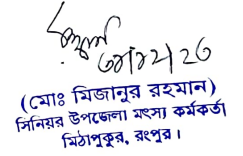 (মোঃ মিজানুর রহমান)
সিনিয়র উপজেলা মৎস্য কর্মকর্তা
মিঠাপুকুর, রংপুর।